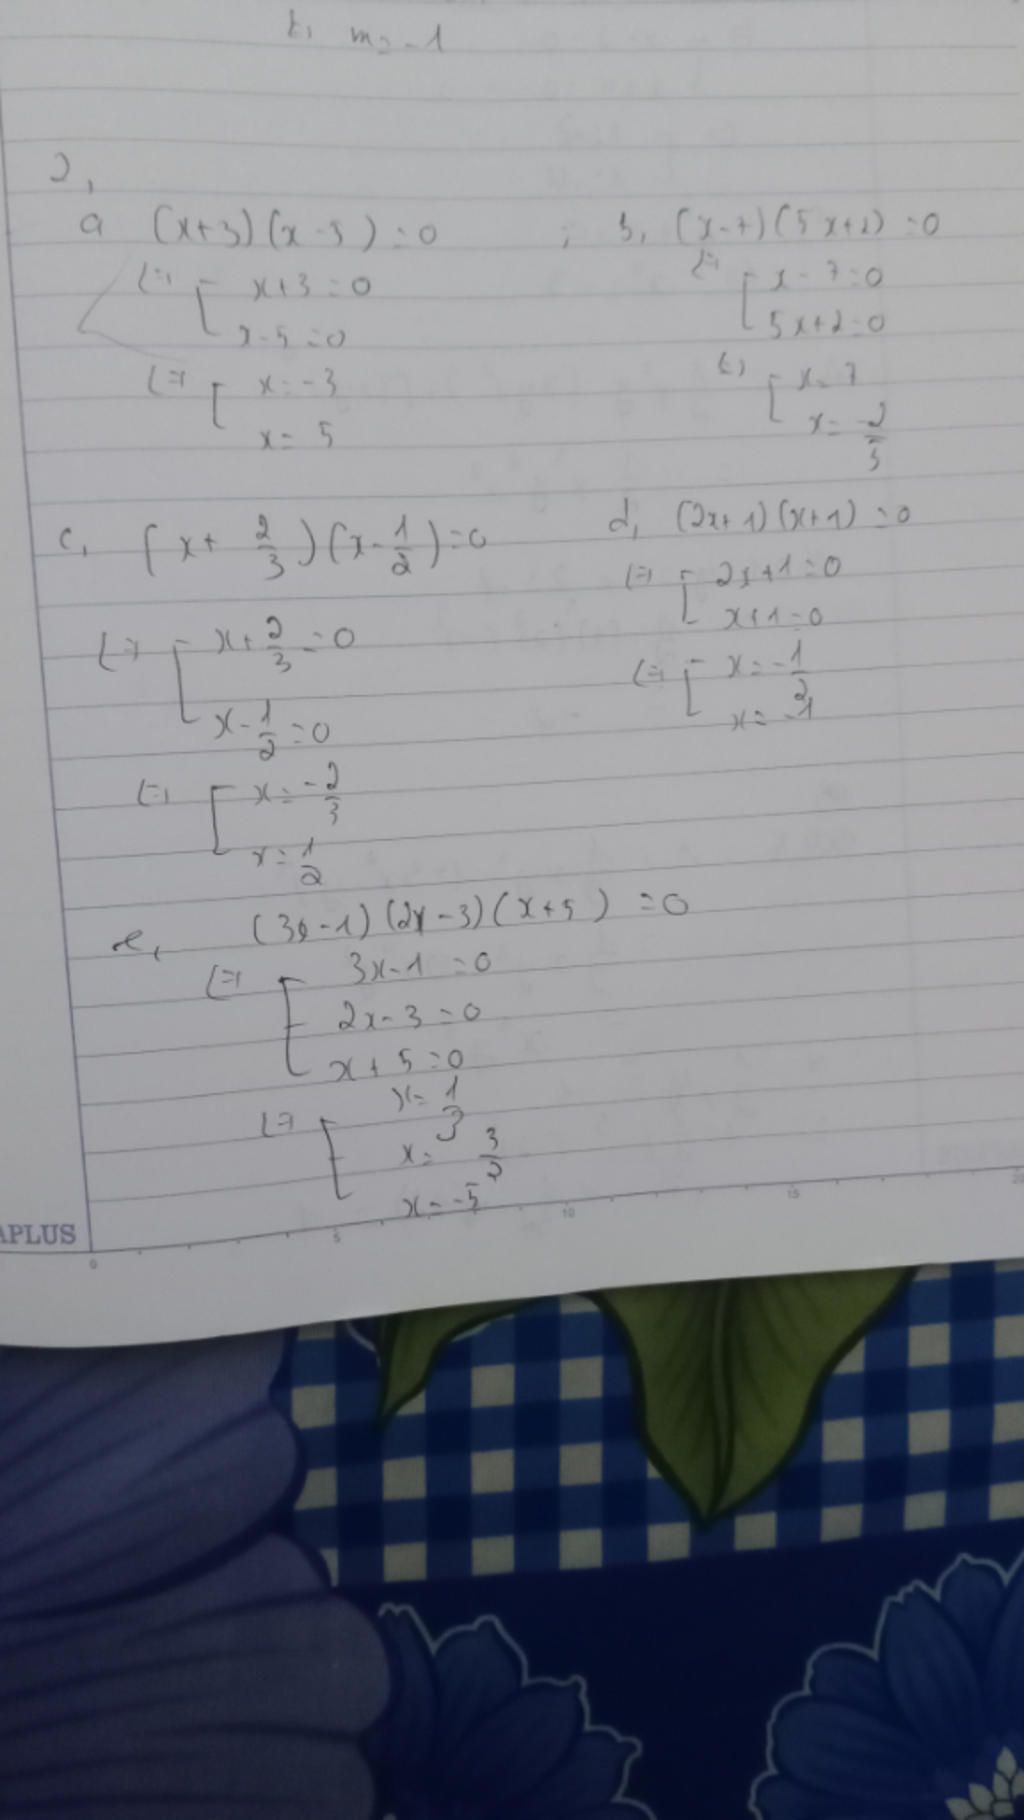 ⇔ m = -1
2,
a (x+3)(x-5) = 0 ; b, (x-7)(5x+2) = 0
⇔ [ x+3 = 0
x-5 = 0
⇔ [ x = -3
x = 5
⇔ [ x-7 = 0
5x+2 = 0
⇔ [ x = 7
x = -2/5
c, (x + 2/3)(x - 1/2) = 0
⇔ [ x + 2/3 = 0
x - 1/2 = 0
⇔ [ x = -2/3
x = 1/2
d, (2x+1)(x+1) = 0
⇔ [ 2x+1 = 0
x+1 = 0
⇔ [ x = -1/2
x = -1
e, (3x-1)(2x-3)(x+5) = 0
⇔ [ 3x-1 = 0
2x-3 = 0
x+5 = 0
⇔ [ x = 1/3
x = 3/2
x = -5
APLUS
0 5 10 15 20